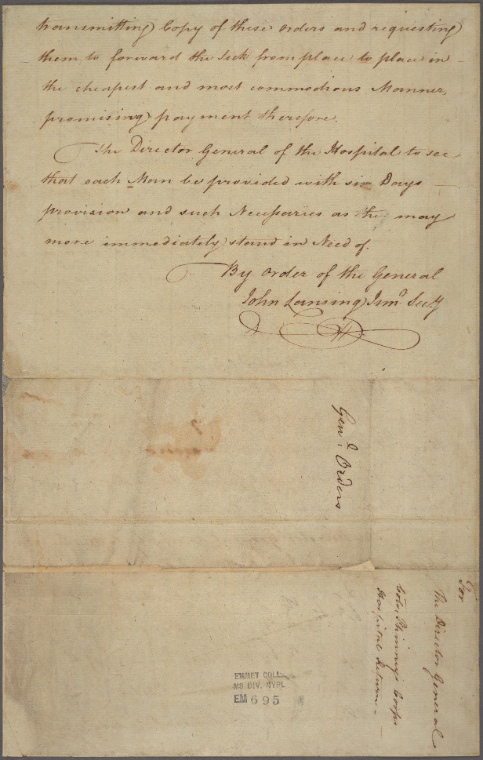 transmitting Copy of these orders and requesting
them to forward the Sick from place to place in
the cheapest and most commodious Manner,
promising payment therefore.
The Director General of the Hospital to see
that each Man be provided with six Days
provision and such Necessaries as they may
more immediately stand in Need of.
By order of the General
John Lansing Junr Secy
Genl. Orders
For
The Director General
Hospital Return
EMMET COLL.
MS DIV. NYPL
EM 695